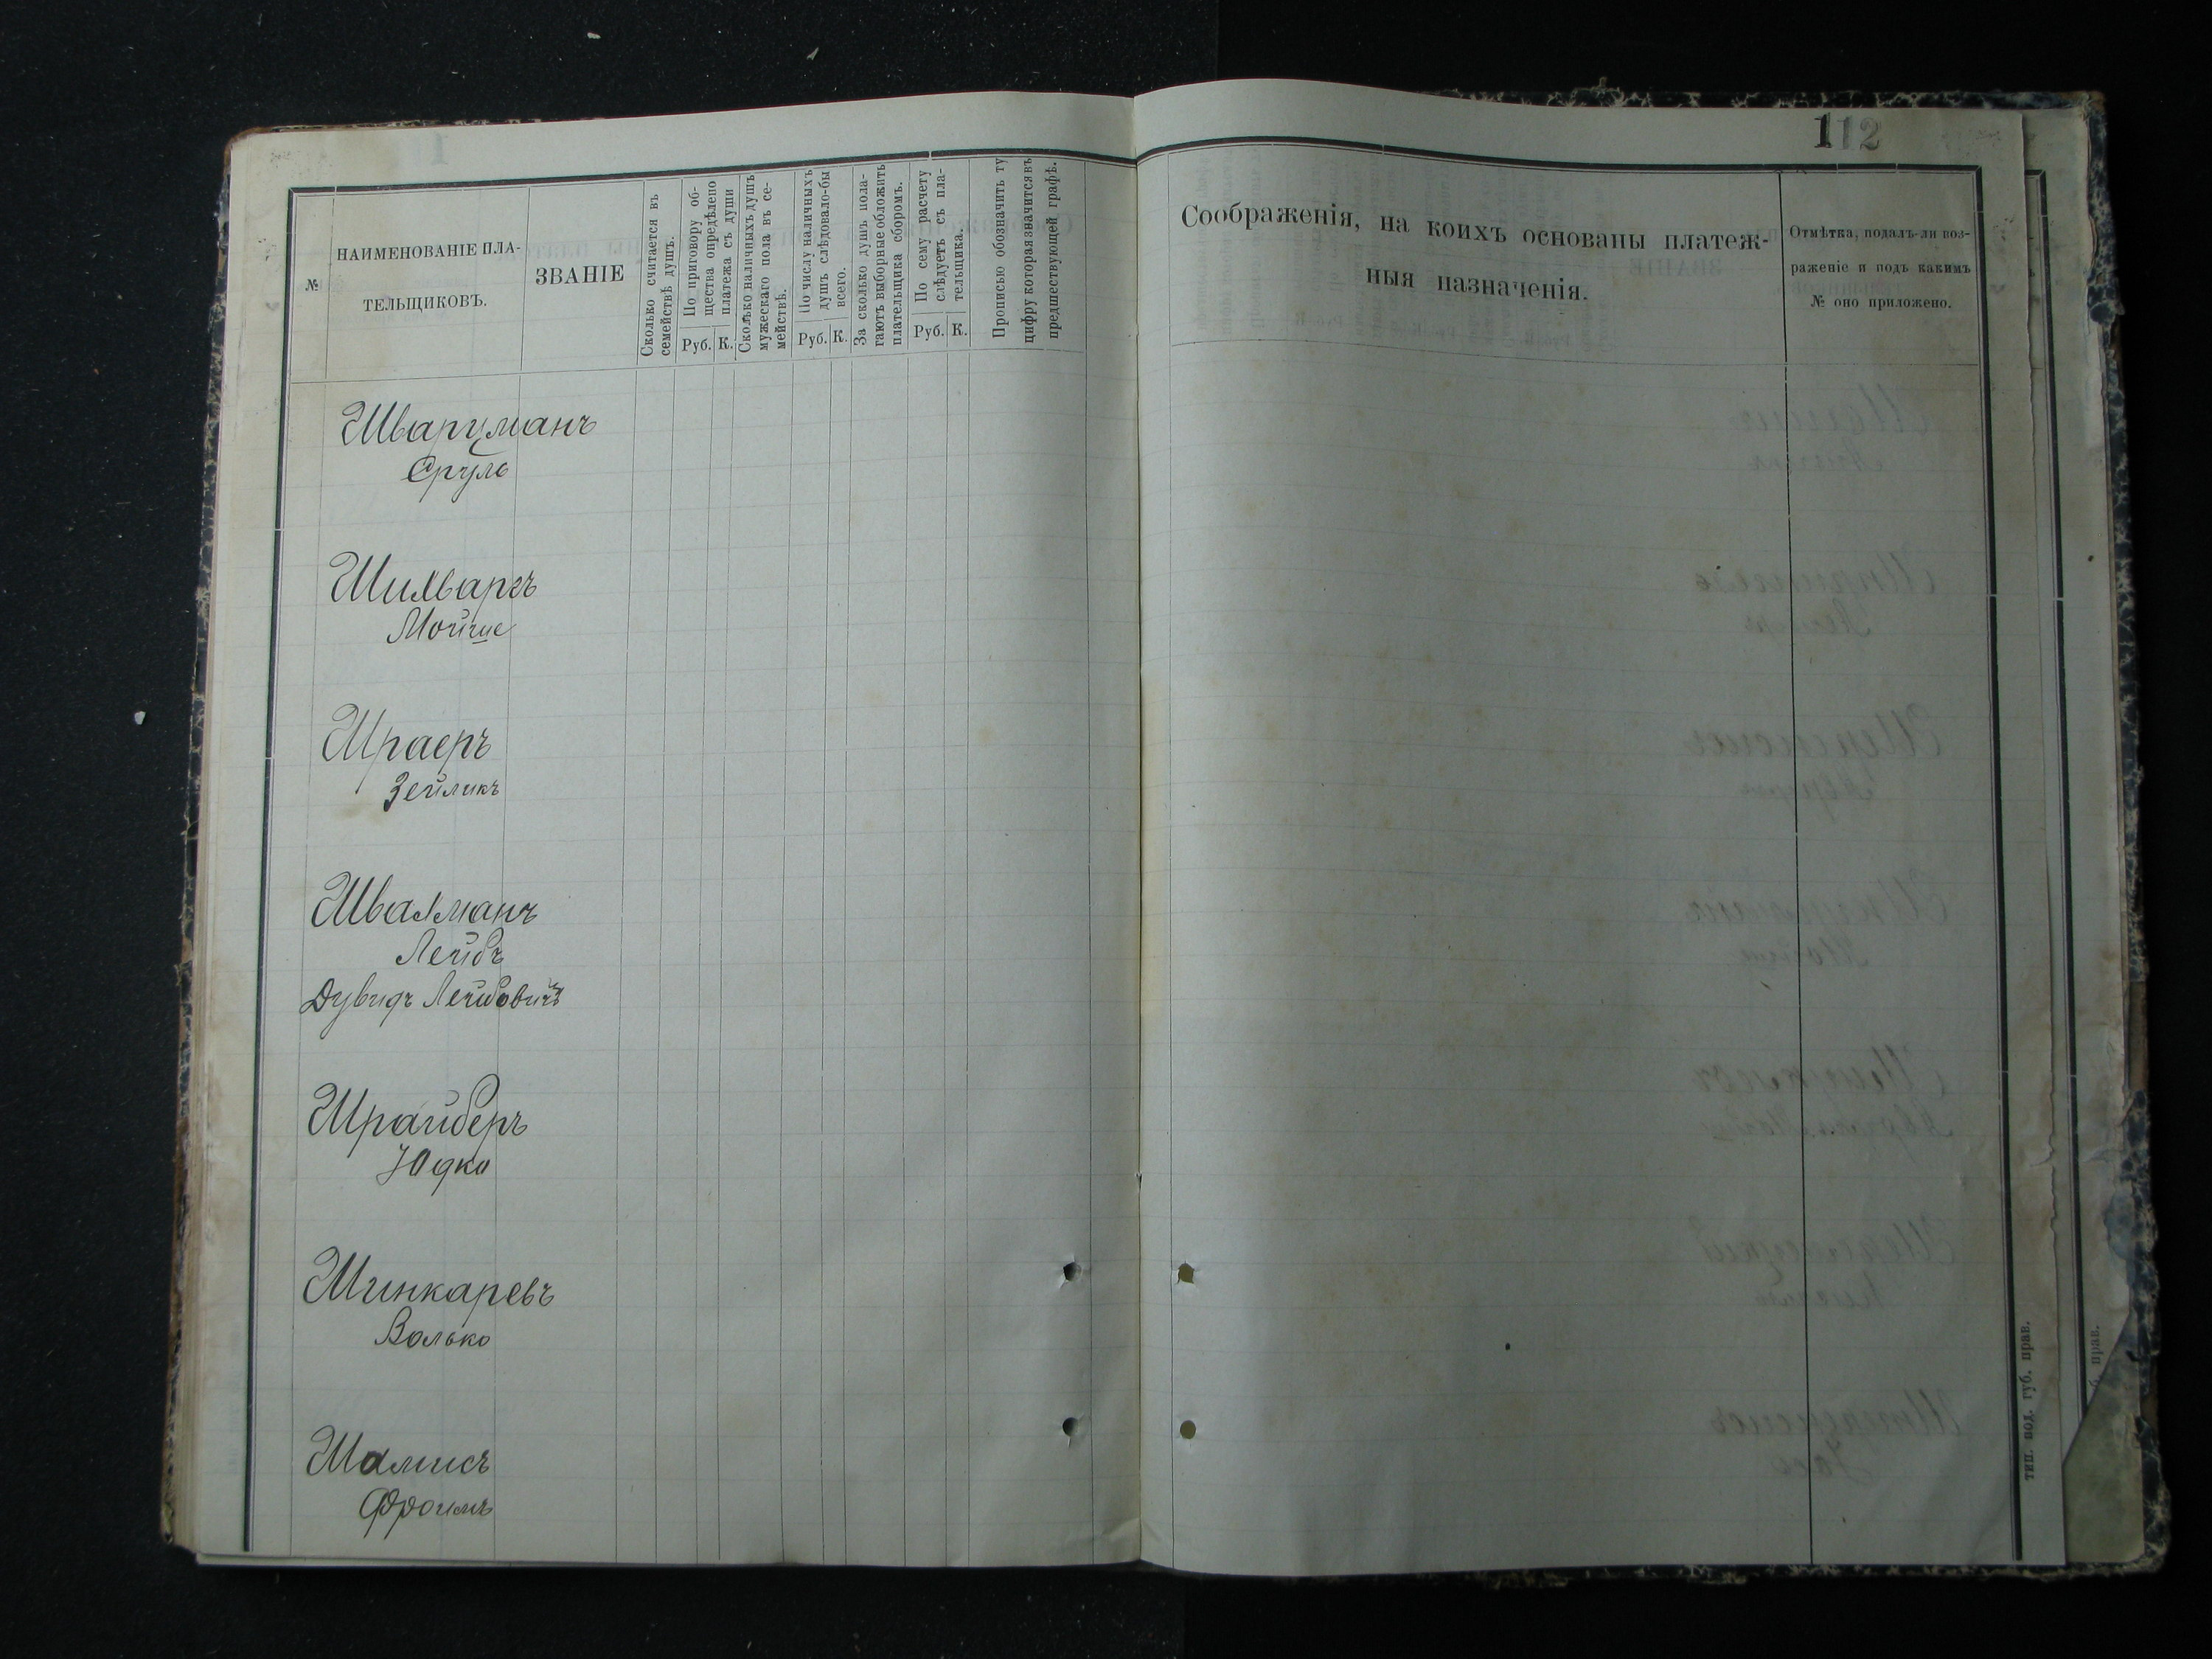 112
№
НАИМЕНОВАНІЕ ПЛА-
ТЕЛЬЩИКОВЪ.
ЗВАНІЕ
Сколько считается въ
семействѣ душъ.
По приговору об-
щества опредѣлено
платежа съ души
Руб. К.
Сколько наличныхъ душъ
мужескаго пола въ се-
мействѣ.
По числу наличныхъ
душъ слѣдовало-бы
всего.
Руб. К.
За сколько душъ пола-
гаютъ выборные обложить
плательщика сборомъ.
По сему расчету
слѣдуетъ съ пла-
тельщика.
Руб. К.
Прописью обозначить ту
цифру которая значится въ
предшествующей графѣ.
Соображенія, на коихъ основаны платеж-
ныя назначенія.
Отмѣтка, подалъ-ли воз-
раженіе и подъ какимъ
№ оно приложено.
Шварцманъ
Сруль
Шилваргъ
Мойше
Шраеръ
Зейликъ
Швалманъ
Лейбъ
Дувидъ Лейбовичъ
Шрайберъ
Юдко
Шинкаревъ
Волько
Шамисъ
Фроимъ
тип. под. губ. прав.
б. прав.